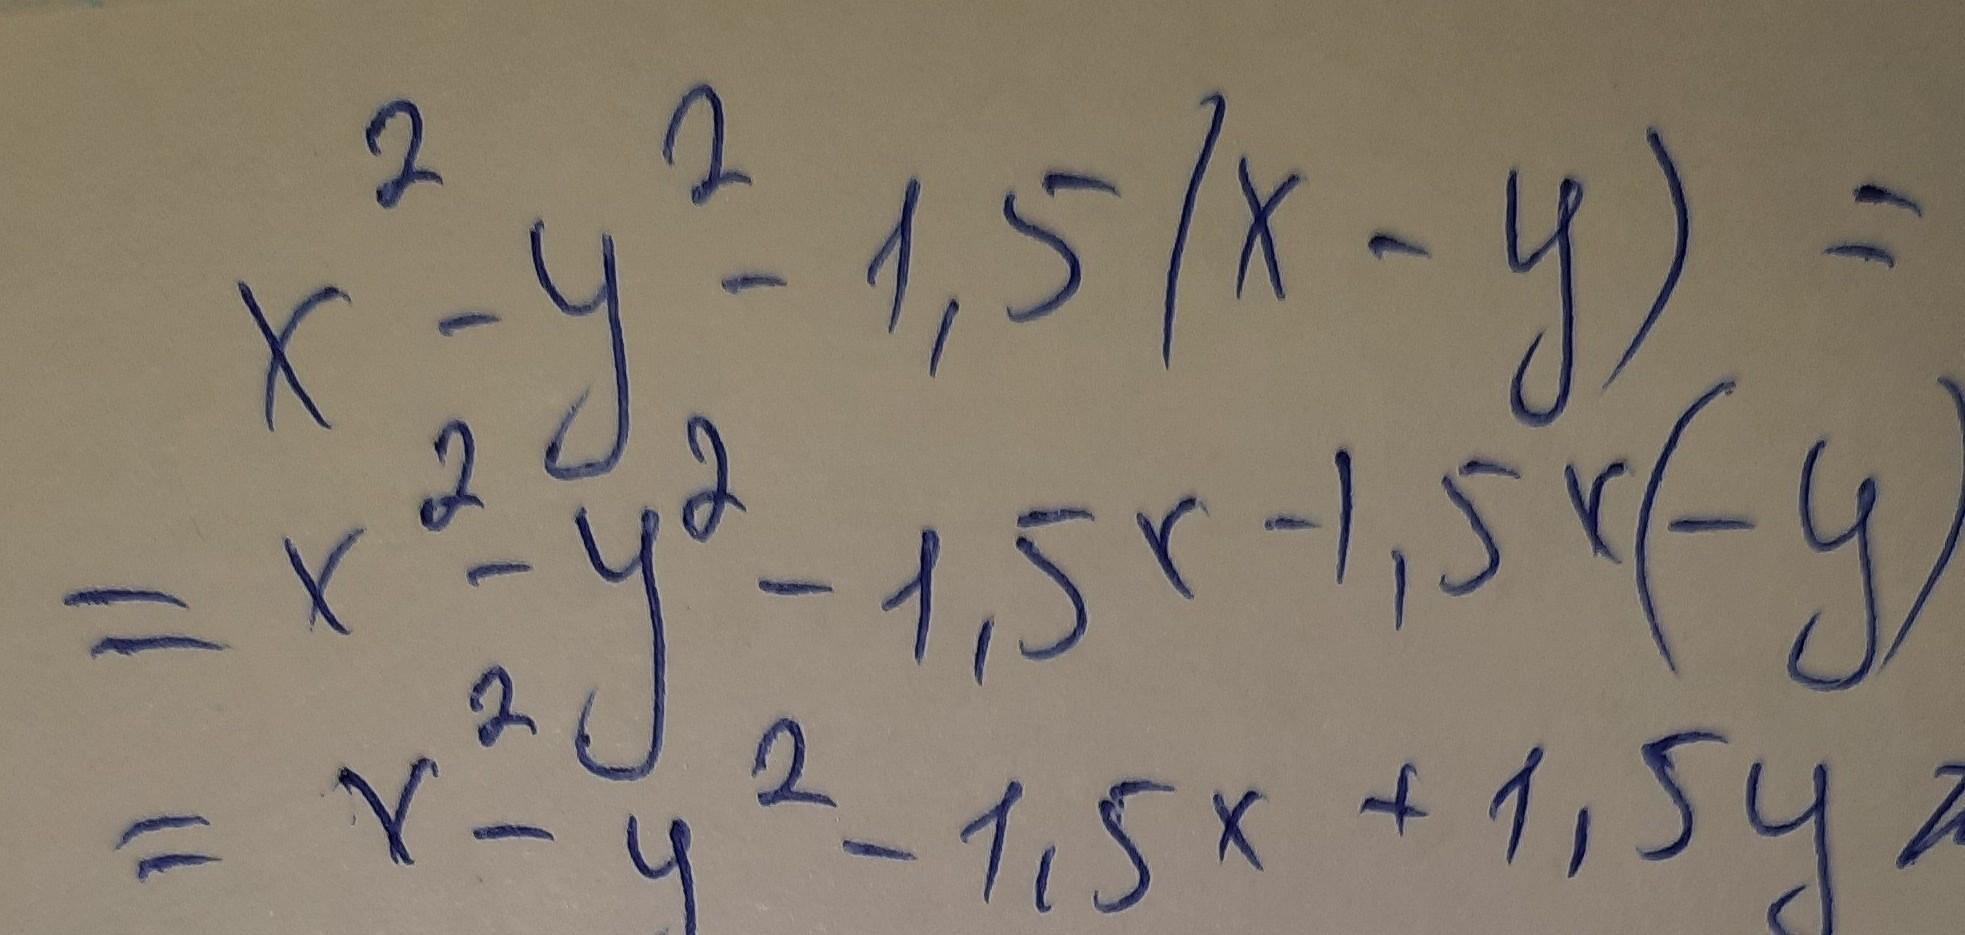 x² - y² - 1,5(x - y) =
= x² - y² - 1,5x - 1,5x(-y)
= x² - y² - 1,5x + 1,5y =